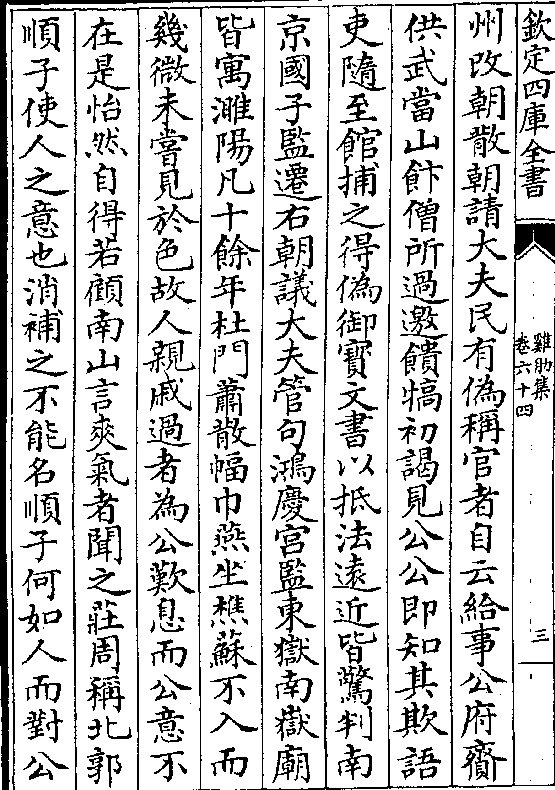 欽定四庫全書
雞肋集
卷六十四
三
州改朝散朝請大夫民有偽稱官者自云給事公府齎
供武當山飰僧所過邀饋犒初謁見公公即知其欺語
吏隨至館捕之得偽御寶文書以抵法遠近皆驚判南
京國子監遷右朝議大夫管句鴻慶宮監東嶽南嶽廟
皆寓濉陽凡十餘年杜門蕭散幅巾燕坐樵蘇不入而
幾微未嘗見於色故人親戚過者為公歎息而公意不
在是怡然自得若顧南山言爽氣者聞之莊周稱北郭
順子使人之意也消補之不能名順子何如人而對公